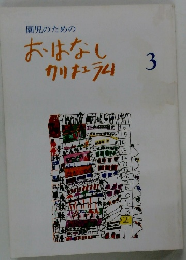 園児のための
おはなし
カリキュラム
3